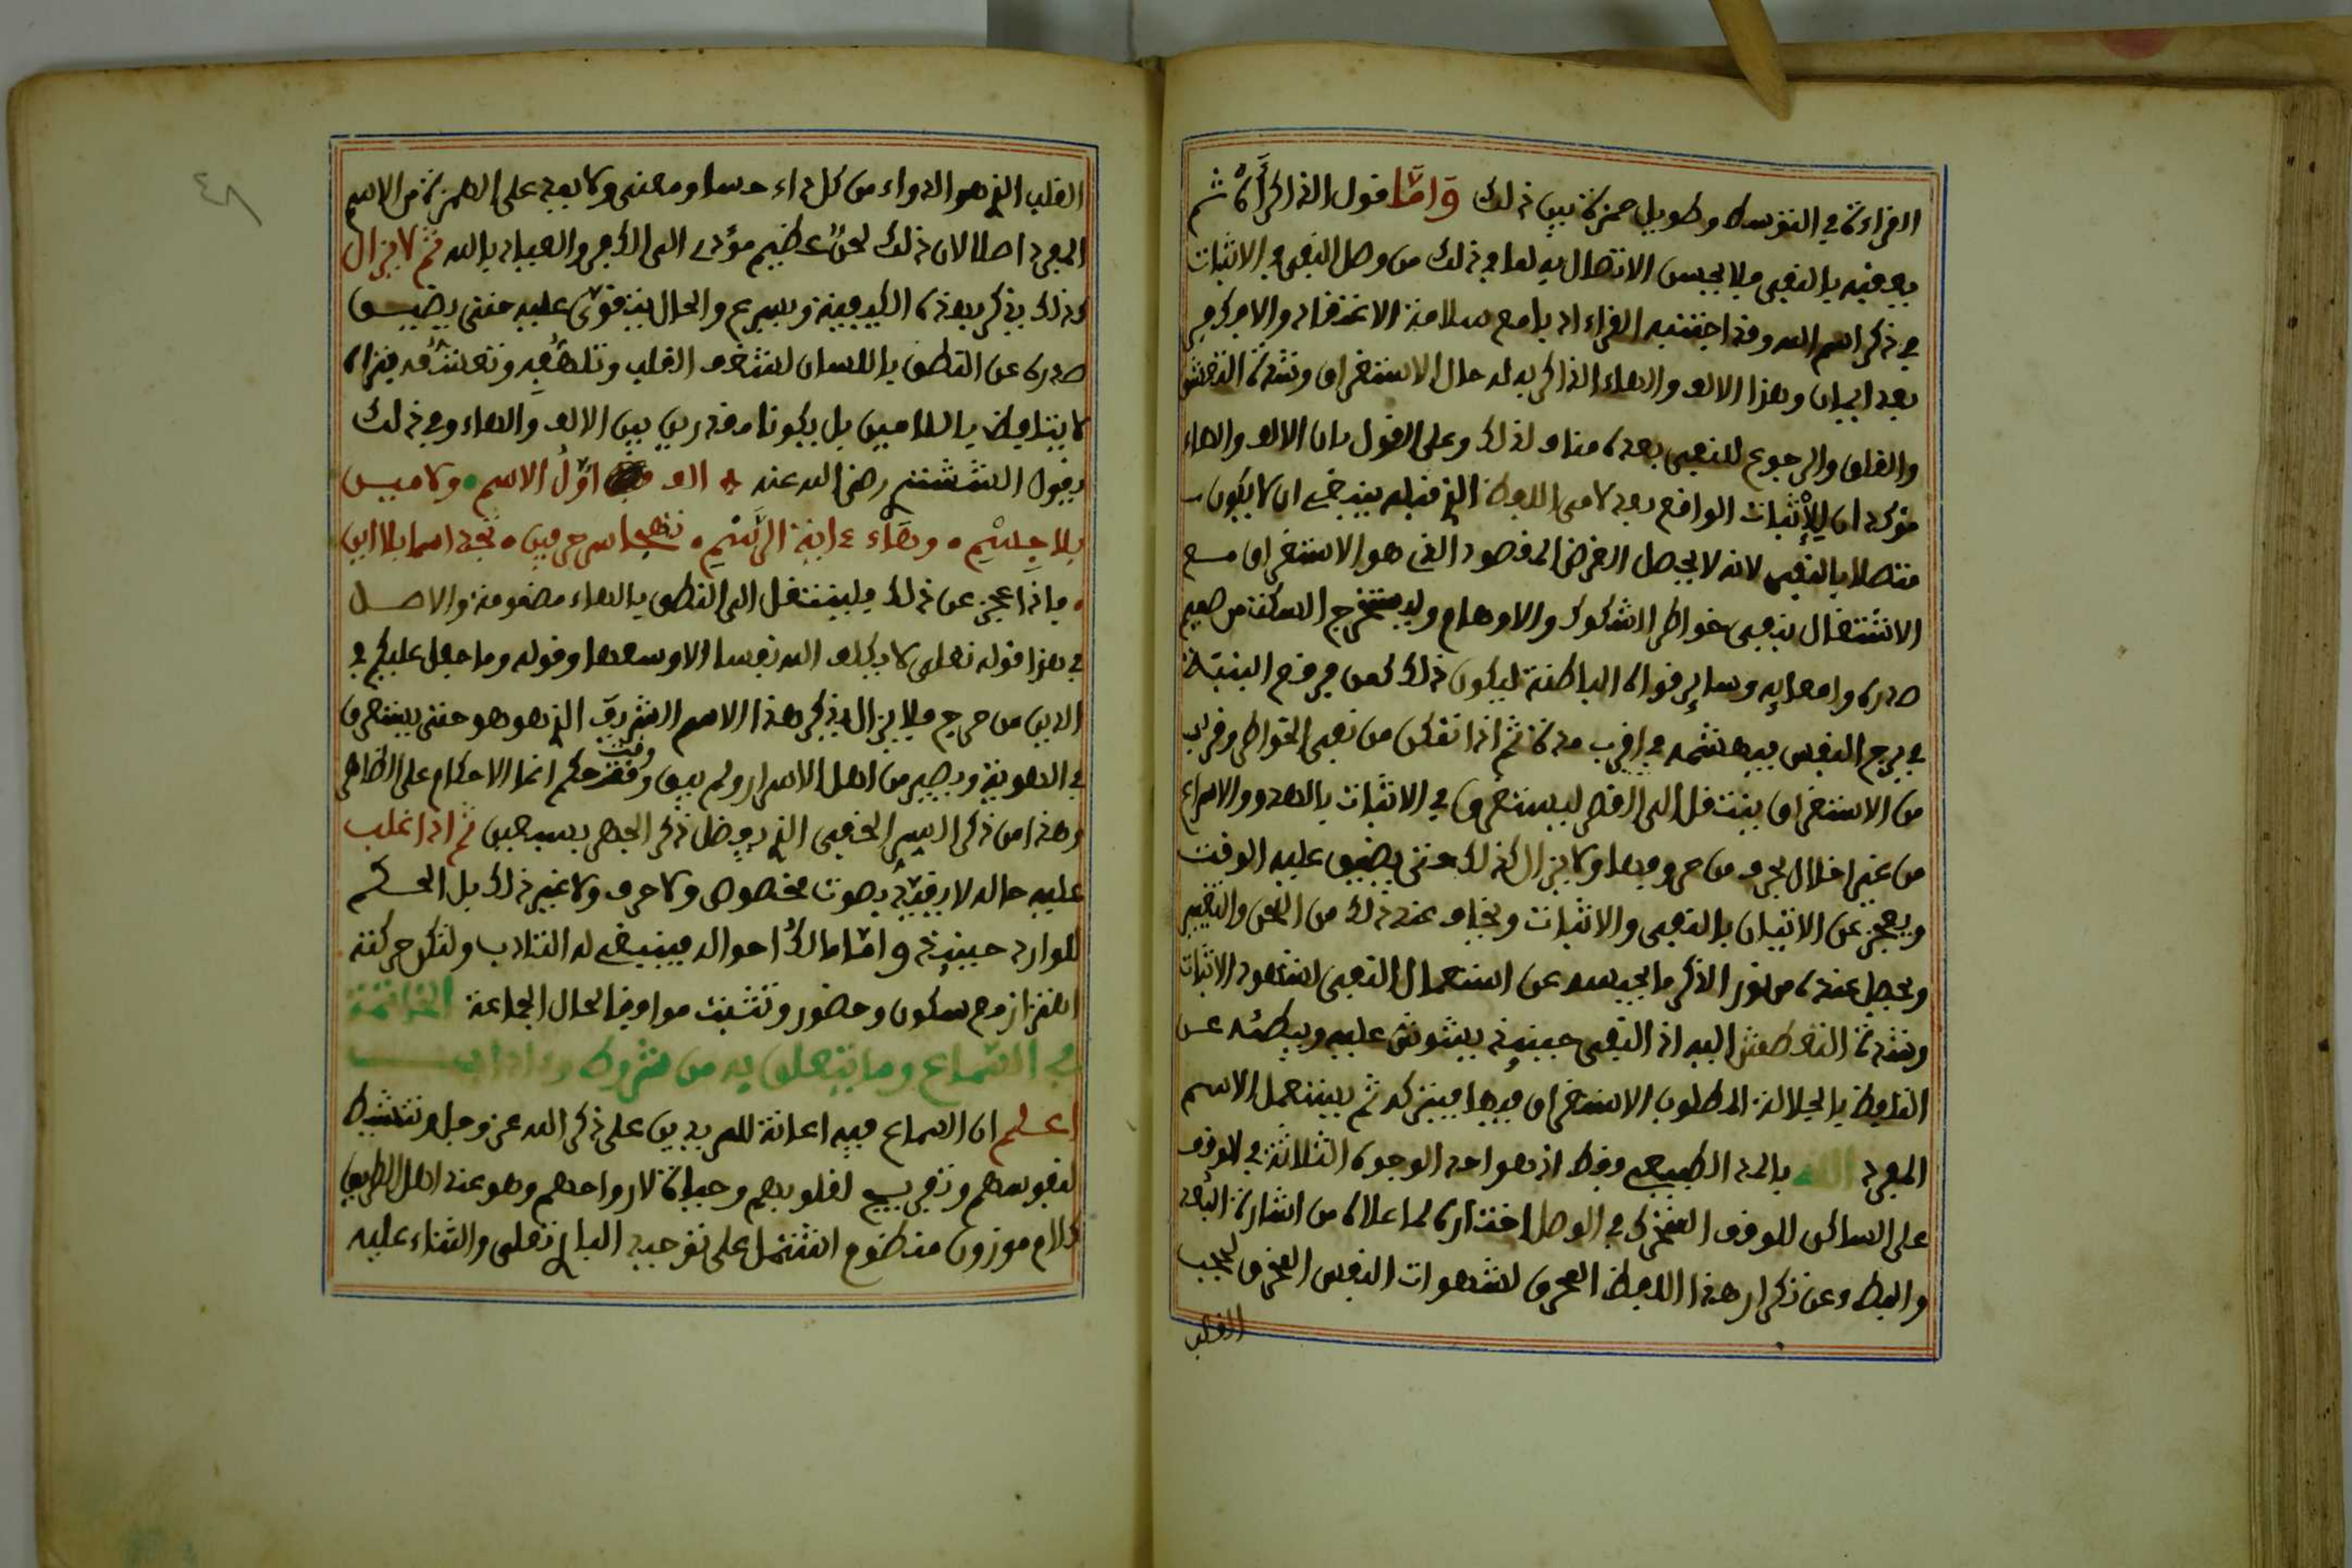 القراءة في التوسط وطويل حمزة بين ذلك واما قول الذاكر آه ثم
يعقبه بالنفي فلا يحسن الاتصال به لما في ذلك من وصل النفي في الاثبات
في ذكر اسم الله وقد اجتنبه القراء ادبا مع سلامة الاعتقاد والا فكفر
بعد ايمان وهذا الالف والهاء الذاكر به له حال الاستغراق وشدة التعطش
والقلق والرجوع للنفي بعده مناف لذلك وعلى القول بان الالف والهاء
مؤكدان للاثبات الواقع بعد لامى اللفظ الذي قبله ينبغي ان لا يكون
متصلا بالنفي لانه لا يحصل الغرض المقصود الذي هو الاستغراق مع
الاشتغال بنفي خواطر الشكوك والاوهام وليستخرج السكتة من صميم
صدره وامعايه وسائر قواه الباطنة ليكون ذلك كمن
في برج النفس فيهشمه في اقرب مدة ثم اذا تمكن من نفي الخواطر وقرب
من الاستغراق ينتقل الى القصر ليستغرق في الاثبات بالهدو والاسراع
من غير اخلال بحرف من حروفها ولا يزال كذلك حتى يضيق عليه الوقت
ويعجز عن الاتيان بالنفي والاثبات ويخاف عند ذلك من اللحن والتغيير
ويحصل عنده من نور الذكر ما يحبسه عن استعمال النفي لشهود الاثبات
وشدة التعطش اليه اذ النفي حينئذ يشوش عليه ويبطئه عن
التلفظ بالجلالة المطلوب الاستغراق فيها فيتركه ثم يستعمل الاسم
المفرد الله بالمد الطبيعي فقط اذ هو احد الوجوه الثلاثة في الوقف
على الساكن للوقف المتحرك في الوصل اختاره لما علاه من اشارة البعد
والبطء وعن تكرار هذا اللفظ المحرق لشهوات النفس المخرق لحجب
القلب
٤٨
القلب الذي هو الدواء من كل داء حسا ومعنى ولا يمد على الهمزة من الاسم
المفرد اصلا لان ذلك لحن عظيم مؤدى الى الكفر والعياذ بالله ثم لا يزال
كذلك يذكر بهذه الكيفية ويسرع والحال يتقوى عليه حتى يضيق
صدره عن النطق باللسان لشغف القلب وتلهفه وتعشقه فتراه
لا يتلفظ باللامين بل يكونا مقدرين بين الالف والهاء وفي ذلك
يقول الششتري رضي الله عنه الف اول الاسم ولامين
بلا جسم وهاء غاية الرسم تهجا سر حرفين تجد اسما بلا اين
فاذا عجز عن ذلك فلينتقل الى النطق بالهاء مضمومة والاصل
في هذا قوله تعلى لا يكلف الله نفسا الا وسعها وقوله وما جعل عليكم في
الدين من حرج فلا يزال يذكر هذا الاسم الشريف الذي هو هو حتى يستغرق
في الهوية ويصير من اهل الاسرار ولم يبق وقت حكم انما الاحكام على الظاهر
وهذا من ذكر السر الخفي الذي يفضل ذكر الجهر بسبعين ثم اذا غلب
عليه حاله لا يتقيد بصوت مخصوص ولا حرف ولا غير ذلك بل الحكم
للوارد حينئذ واما مالك احواله فينبغي له التادب ولتكن حركته
اهتزاز مع سكون وحضور وتثبت موافق لحال الجماعة الخاتمة
في السماع وما يتعلق به من شروط واداب
اعلم ان السماع فيه اعانة للمريدين على ذكر الله عز وجل وتنشيط
لنفوسهم وتفريح لقلوبهم وحياة لارواحهم وهو عند اهل الطريق
كلام موزون منظوم اشتمل على توحيد الباري تعلى والثناء عليه